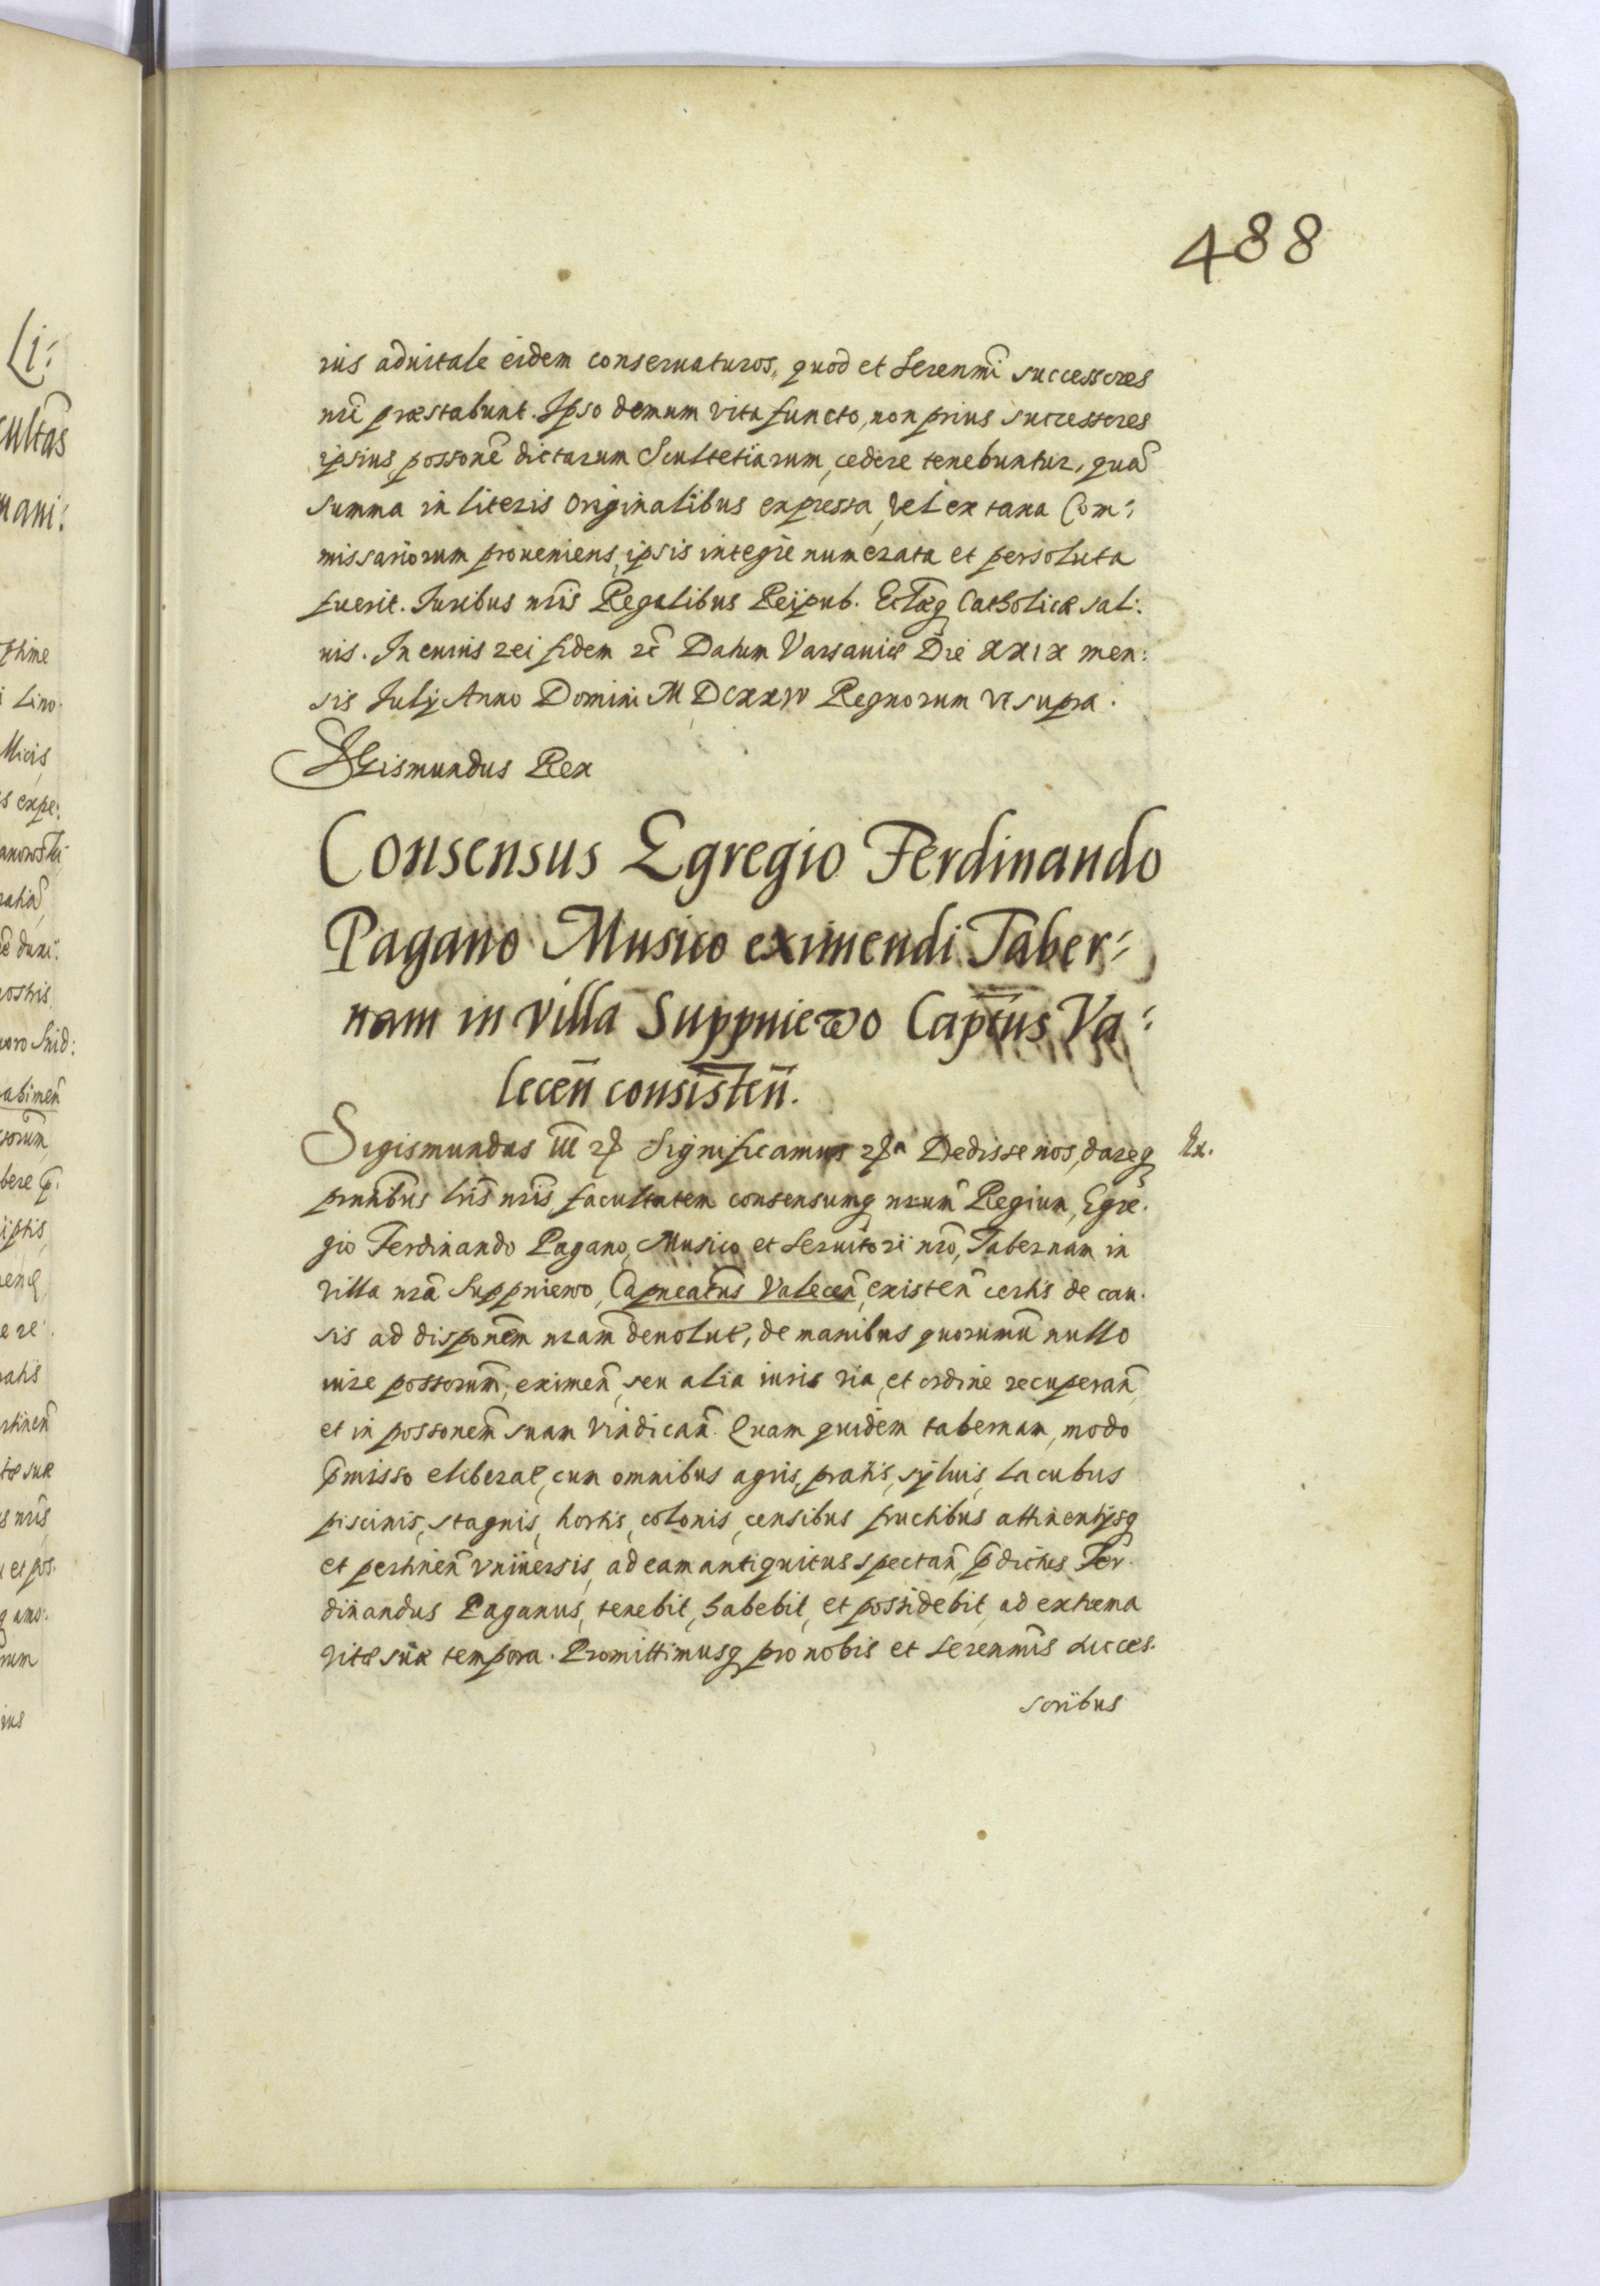 488
ius aduitale eidem conseruaturos, quod et Serenmi successores
nri præstabunt. Ipso demum vita functo, non prius successores
ipsius possone dictarum Scultetiarum, cedere tenebuntur, quã
summa in literis Originalibus expressa, vel ex taxa Com:
missariorum proueniens, ipsis integre numerata et persoluta
fuerit. Iuribus nris Regalibus Reipub. Ecclæq Catholicæ sal:
uis. In cuius rei fidem rc Datum Varsauiæ Die XXIX men:
sis July Anno Domini M DCXXIV Regnorum vt supra.
Sigismundus Rex
Consensus Egregio Ferdinando
Pagano Musico eximendi Taber:
nam in villa Suppniewo Captus Va:
lecen consisten.
Sigismundus III Significamus Dedisse nos, dareq Ex.
pnntibus lris nris facultatem consensumq nrum Regium, Egre:
gio Ferdinando Pagano, Musico et Seruitori nro, Tabernam in
villa nra Suppniewo, Capneatus Valecen, existen certis de cau:
sis ad disponem nram deuolut, de manibus quorumuis nullo
iure possorum, eximen, seu alia iuris via, et ordine recuperan,
et in possonem suam vindican. Quam quidem tabernam, modo
pmisso eliberat, cum omnibus agris, pratis, syluis, lacubus
piscinis, stagnis, hortis, colonis, censibus fructibus attinentijsq
et pertinen vniuersis, ad eam antiquitus spectan, pdictus Fer:
dinandus Paganus, tenebit, habebit, et possidebit, ad extrema
vitæ suæ tempora. Promittimusq pro nobis et Serenmis succes:
soribus